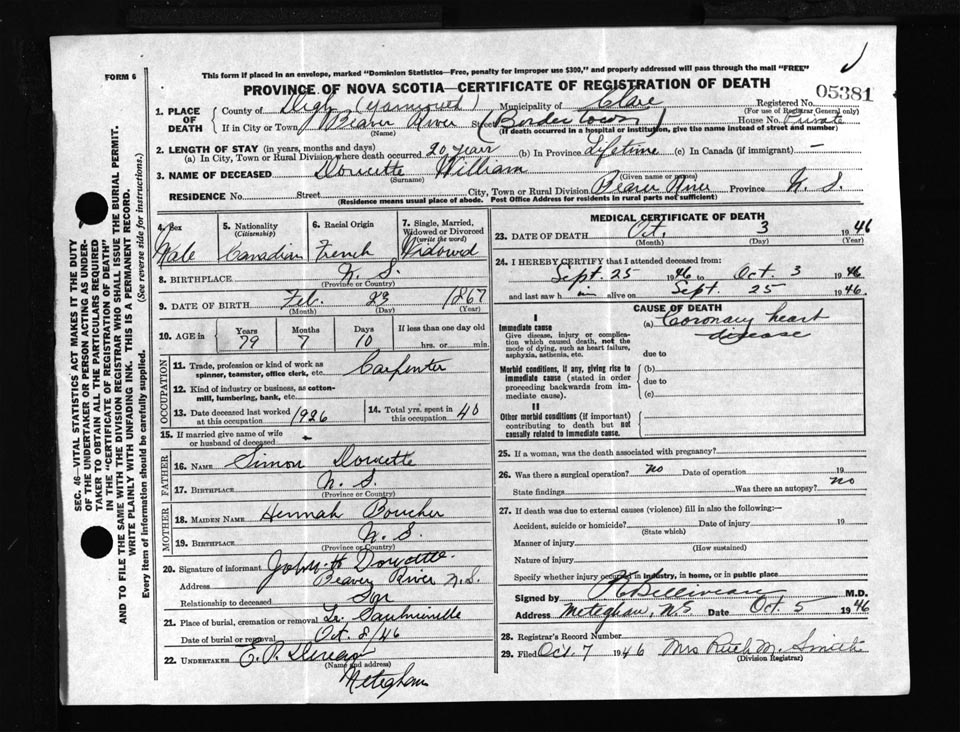 This form if placed in an envelope, marked "Dominion Statistics—Free, penalty for improper use $300," and properly addressed will pass through the mail "FREE"
FORM 6
PROVINCE OF NOVA SCOTIA—CERTIFICATE OF REGISTRATION OF DEATH
05381
1. PLACE OF DEATH
County of Digby (Yarmouth) Municipality of Clare Registered No.
(For use of Registrar General only)
If in City or Town Beaver River Street (Border town) House No. Private
(Name) (If death occurred in a hospital or institution, give the name instead of street and number)
2. LENGTH OF STAY (in years, months and days)
(a) In City, Town or Rural Division where death occurred 20 years (b) In Province Lifetime (c) In Canada (if immigrant) —
3. NAME OF DECEASED Doucette William
(Surname) (Given name or names)
RESIDENCE No. Street City, Town or Rural Division Beaver River Province N. S.
(Residence means usual place of abode. Post Office Address for residents in rural parts not sufficient)
4. Sex Male
5. Nationality (Citizenship) Canadian
6. Racial Origin French
7. Single, Married, Widowed or Divorced (write the word) Widowed
8. BIRTHPLACE N. S.
(Province or Country)
9. DATE OF BIRTH Feb. 23 1867
(Month) (Day) (Year)
10. AGE in Years 79 Months 7 Days 10 If less than one day old hrs. or min.
OCCUPATION
11. Trade, profession or kind of work as spinner, teamster, office clerk, etc. Carpenter
12. Kind of industry or business, as cotton-mill, lumbering, bank, etc.
13. Date deceased last worked at this occupation 1926
14. Total yrs. spent in this occupation 40
15. If married give name of wife or husband of deceased -
FATHER
16. NAME Simon Doucette
17. BIRTHPLACE N. S.
(Province or Country)
MOTHER
18. MAIDEN NAME Hennah Boucher
19. BIRTHPLACE N. S.
(Province or Country)
20. Signature of informant John H Doucette.
Address Beaver River N.S.
Relationship to deceased Son
21. Place of burial, cremation or removal Saulnierville
Date of burial or removal Oct. 8/46
22. UNDERTAKER E. P.
(Name and address)
Meteghan
MEDICAL CERTIFICATE OF DEATH
23. DATE OF DEATH Oct. 3 1946
(Month) (Day) (Year)
24. I HEREBY CERTIFY that I attended deceased from:
Sept. 25 1946 to Oct. 3 1946
and last saw him alive on Sept. 25 1946.
CAUSE OF DEATH
I
Immediate cause
Give disease, injury or complication which caused death, not the mode of dying, such as heart failure, asphyxia, asthenia, etc.
(a) Coronary heart disease
due to
Morbid conditions, if any, giving rise to immediate cause (stated in order proceeding backwards from immediate cause).
(b)
due to
(c)
II
Other morbid conditions (if important) contributing to death but not causally related to immediate cause.
25. If a woman, was the death associated with pregnancy?
26. Was there a surgical operation? no Date of operation 19
State findings Was there an autopsy? no
27. If death was due to external causes (violence) fill in also the following:—
Accident, suicide or homicide? Date of injury 19
(State which)
Manner of injury
(How sustained)
Nature of injury
Specify whether injury occurred in industry, in home, or in public place
Signed by M.D.
Address Meteghan, N.S Date Oct 5 1946
28. Registrar's Record Number
29. Filed Oct. 7 1946 Mrs Ruth M. Smith
(Division Registrar)
SEC. 46—VITAL STATISTICS ACT MAKES IT THE DUTY
OF THE UNDERTAKER OR PERSON ACTING AS UNDER-
TAKER TO OBTAIN ALL THE PARTICULARS REQUIRED
IN THE "CERTIFICATE OF REGISTRATION OF DEATH"
AND TO FILE THE SAME WITH THE DIVISION REGISTRAR WHO SHALL ISSUE THE BURIAL PERMIT.
WRITE PLAINLY WITH UNFADING INK. THIS IS A PERMANENT RECORD.
Every item of information should be carefully supplied. (See reverse side for instructions.)